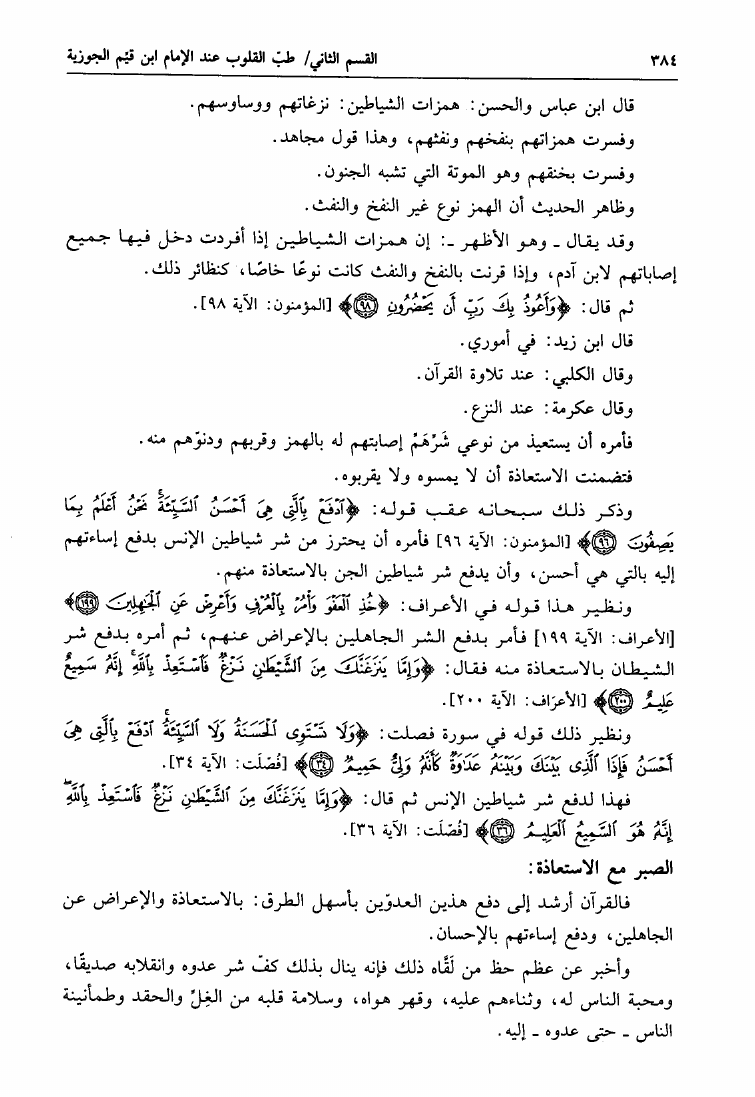 ٣٨٤
القسم الثاني/ طبّ القلوب عند الإمام ابن قيّم الجوزية
قال ابن عباس والحسن: همزات الشياطين: نزغاتهم ووساوسهم.
وفسرت همزاتهم بنفخهم ونفثهم، وهذا قول مجاهد.
وفسرت بخنقهم وهو الموتة التي تشبه الجنون.
وظاهر الحديث أن الهمز نوع غير النفخ والنفث.
وقد يقال ـ وهو الأظهر ـ: إن همزات الشياطين إذا أفردت دخل فيها جميع
إصاباتهم لابن آدم، وإذا قرنت بالنفخ والنفث كانت نوعًا خاصًا، كنظائر ذلك.
ثم قال: ﴿وَأَعُوذُ بِكَ رَبِّ أَن يَحْضُرُونِ ۝٩٨﴾ [المؤمنون: الآية ٩٨].
قال ابن زيد: في أموري.
وقال الكلبي: عند تلاوة القرآن.
وقال عكرمة: عند النزع.
فأمره أن يستعيذ من نوعي شَرِّهَمْ إصابتهم له بالهمز وقربهم ودنوّهم منه.
فتضمنت الاستعاذة أن لا يمسوه ولا يقربوه.
وذكر ذلك سبحانه عقب قوله: ﴿ٱدْفَعْ بِٱلَّتِى هِىَ أَحْسَنُ ٱلسَّيِّئَةَۚ نَحْنُ أَعْلَمُ بِمَا
يَصِفُونَ ۝٩٦﴾ [المؤمنون: الآية ٩٦] فأمره أن يحترز من شر شياطين الإنس بدفع إساءتهم
إليه بالتي هي أحسن، وأن يدفع شر شياطين الجن بالاستعاذة منهم.
ونظير هذا قوله في الأعراف: ﴿خُذِ ٱلْعَفْوَ وَأْمُرْ بِٱلْعُرْفِ وَأَعْرِضْ عَنِ ٱلْجَٰهِلِينَ ۝١٩٩﴾
[الأعراف: الآية ١٩٩] فأمر بدفع الشر الجاهلين بالإعراض عنهم، ثم أمره بدفع شر
الشيطان بالاستعاذة منه فقال: ﴿وَإِمَّا يَنزَغَنَّكَ مِنَ ٱلشَّيْطَٰنِ نَزْغٌ فَٱسْتَعِذْ بِٱللَّهِۚ إِنَّهُۥ سَمِيعٌ
عَلِيمٌ ۝٢٠٠﴾ [الأعرَاف: الآية ٢٠٠].
ونظير ذلك قوله في سورة فصلت: ﴿وَلَا تَسْتَوِى ٱلْحَسَنَةُ وَلَا ٱلسَّيِّئَةُۚ ٱدْفَعْ بِٱلَّتِى هِىَ
أَحْسَنُ فَإِذَا ٱلَّذِى بَيْنَكَ وَبَيْنَهُۥ عَدَٰوَةٌ كَأَنَّهُۥ وَلِىٌّ حَمِيمٌ ۝٣٤﴾ [فُصّلَت: الآية ٣٤].
فهذا لدفع شر شياطين الإنس ثم قال: ﴿وَإِمَّا يَنزَغَنَّكَ مِنَ ٱلشَّيْطَٰنِ نَزْغٌ فَٱسْتَعِذْ بِٱللَّهِۖ
إِنَّهُۥ هُوَ ٱلسَّمِيعُ ٱلْعَلِيمُ ۝٣٦﴾ [فُصّلَت: الآية ٣٦].
الصبر مع الاستعاذة:
فالقرآن أرشد إلى دفع هذين العدوّين بأسهل الطرق: بالاستعاذة والإعراض عن
الجاهلين، ودفع إساءتهم بالإحسان.
وأخبر عن عظم حظ من لَقَّاه ذلك فإنه ينال بذلك كفّ شر عدوه وانقلابه صديقًا،
ومحبة الناس له، وثناءهم عليه، وقهر هواه، وسلامة قلبه من الغِلّ والحقد وطمأنينة
الناس ـ حتى عدوه ـ إليه.